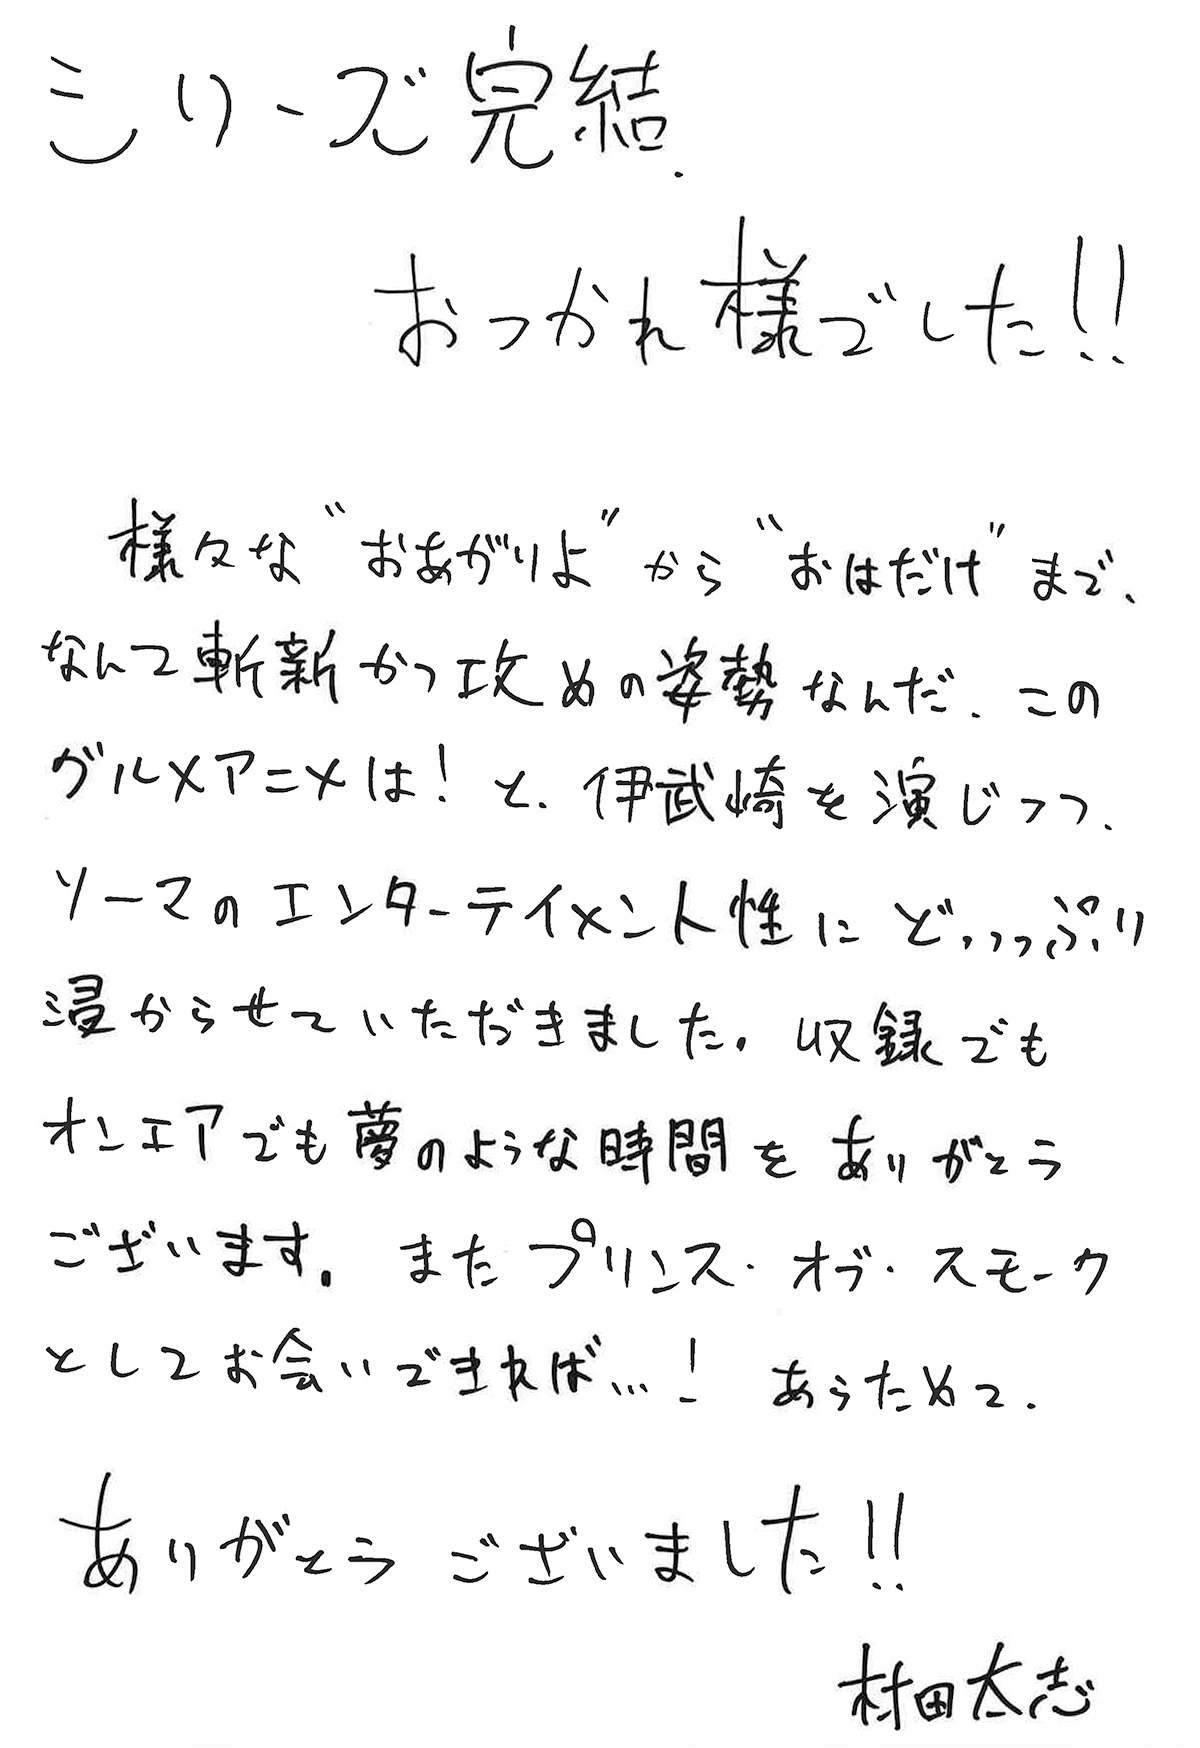 シリーズ完結、
おつかれ様でした!!
様々な“おあがりよ”から“おはだけ”まで、
なんて斬新かつ攻めの姿勢なんだ、この
グルメアニメは!と、伊武崎を演じつつ、
ソーマのエンターテイメント性にどっっっぷり
浸からせていただきました。収録でも
オンエアでも夢のような時間をありがとう
ございます。またプリンス・オブ・スモーク
としてお会いできれば…!あらためて、
ありがとうございました!!
村田太志